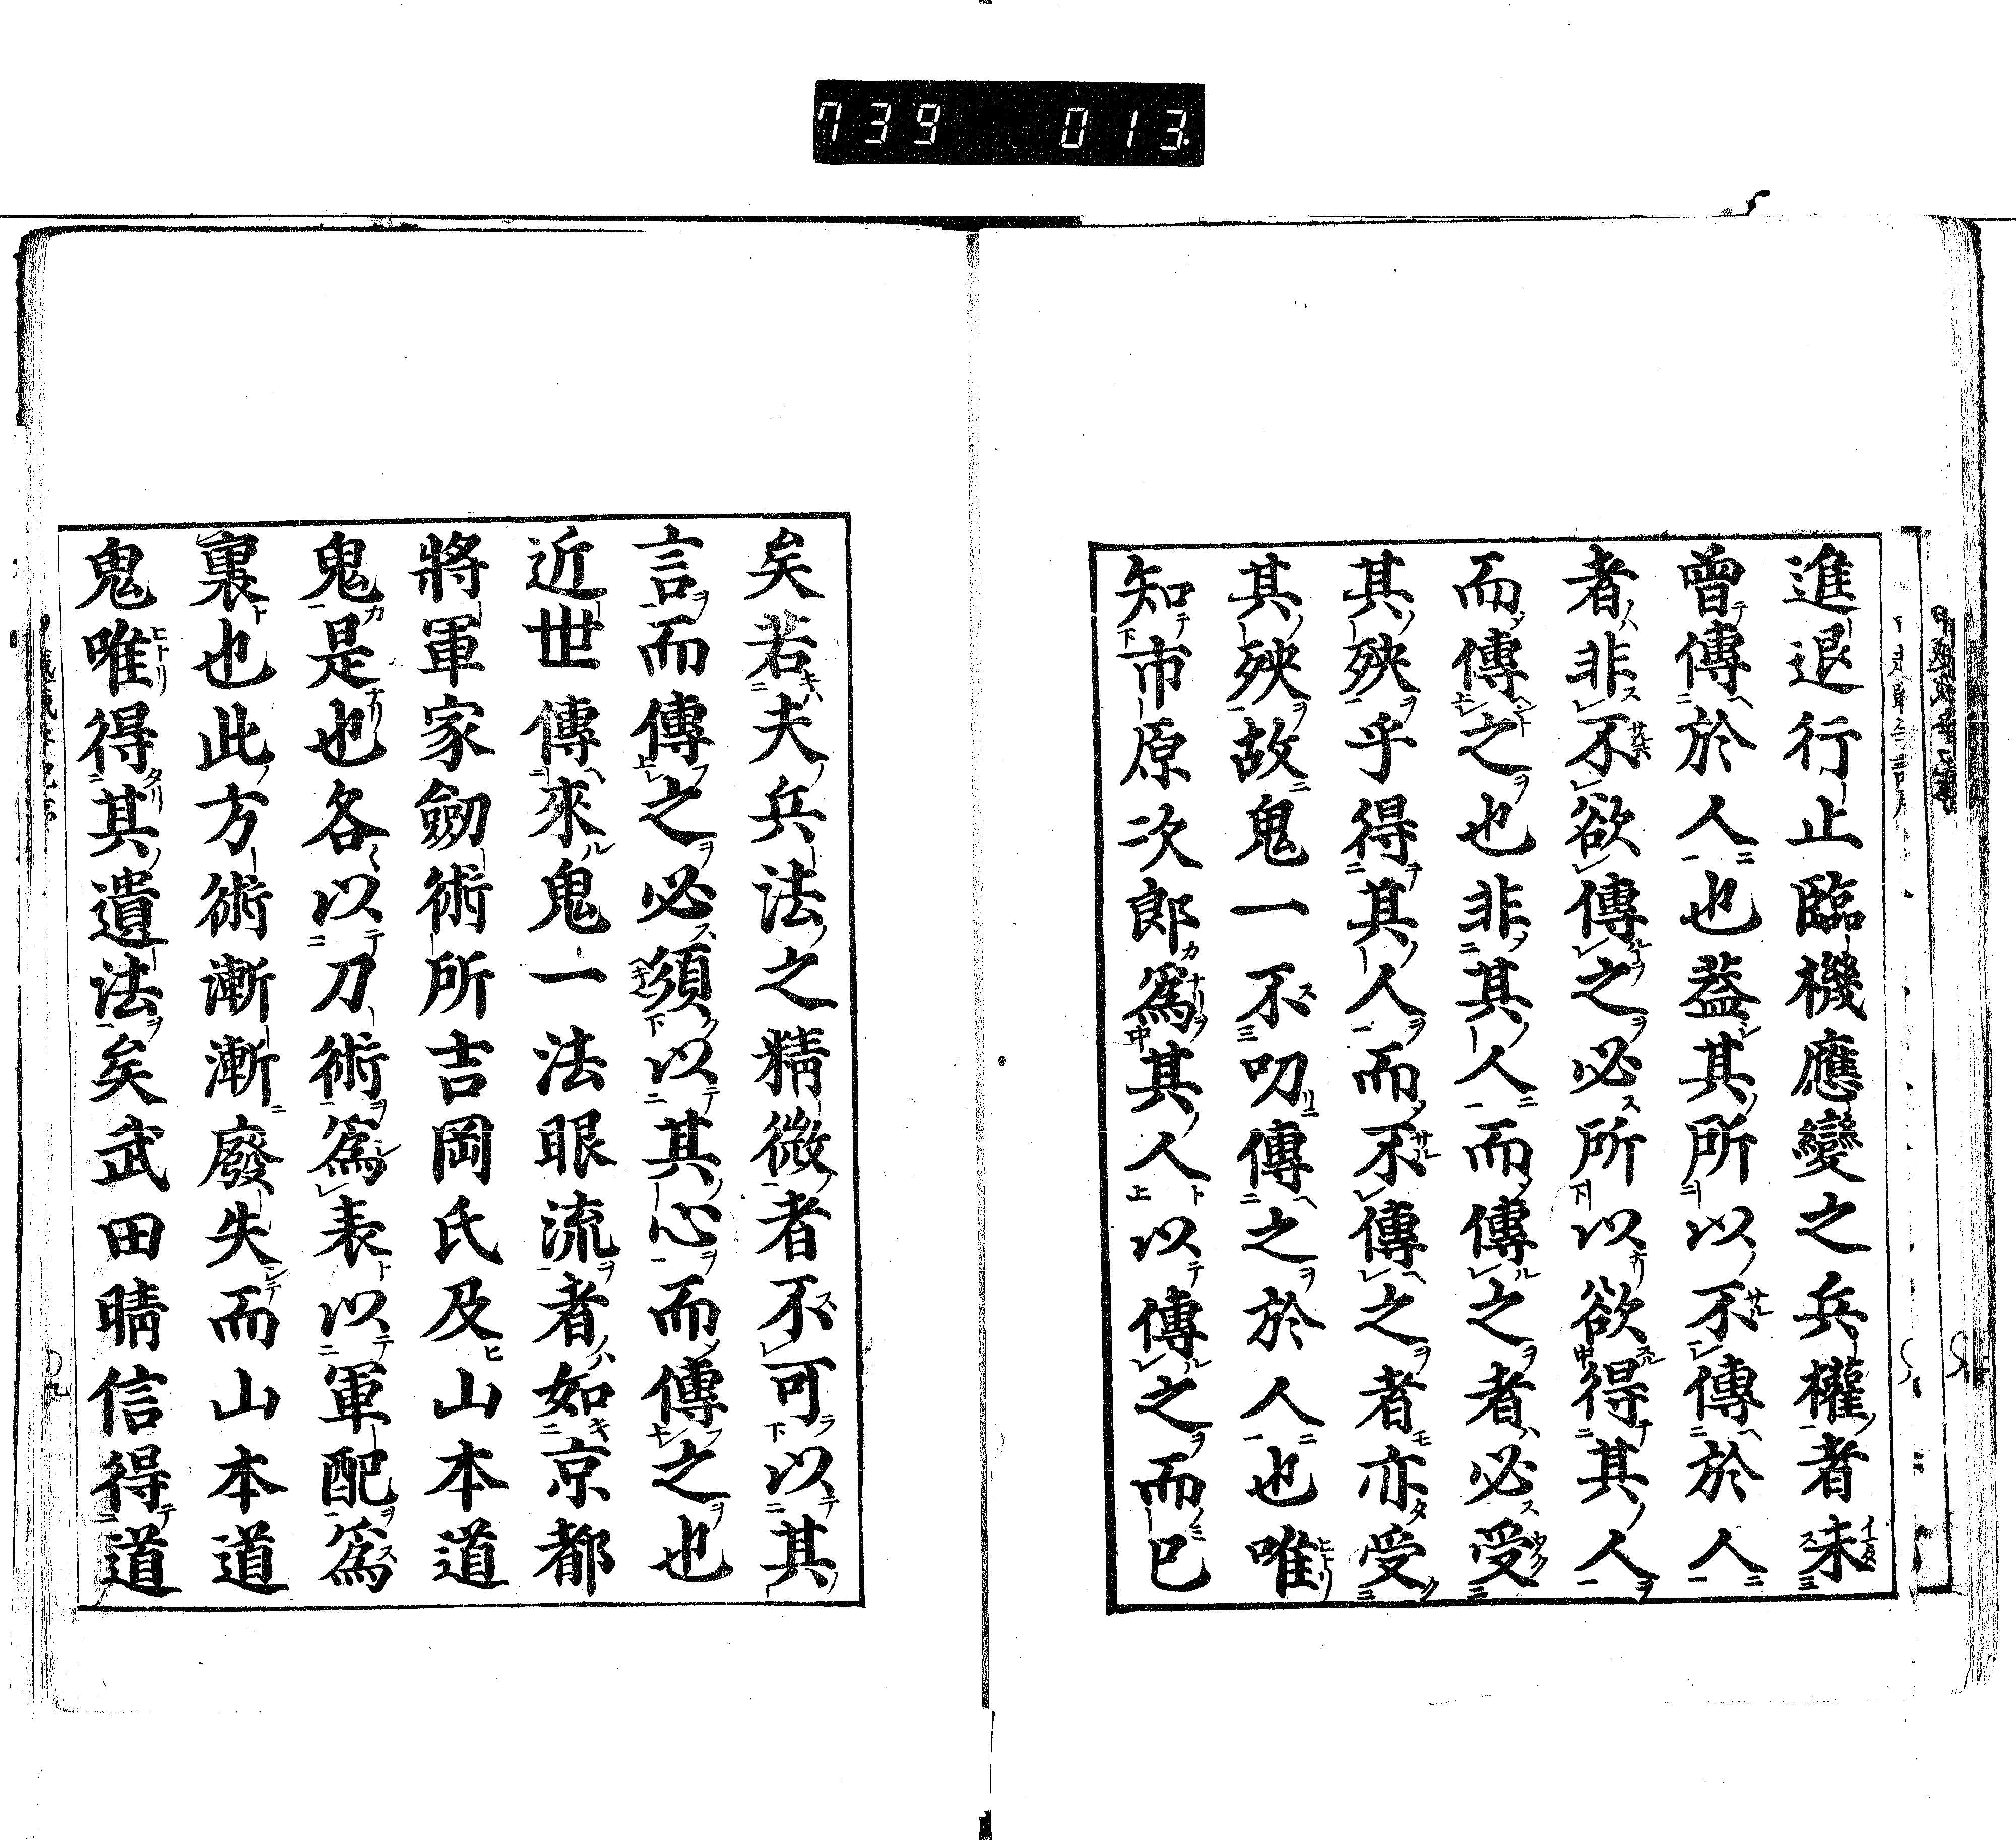 739 013
進退行止臨機應變之兵權者未
曾傳於人也葢其所以不傳於人
者非不欲傳之必所以欲得其人
而傳之也非其人而傳之者必受
其殃乎得其人而不傳之者亦受
其殃故鬼一不叨傳之於人也唯
知市原次郎爲其人以傳之而已
矣若夫兵法之精微者不可以其
言而傳之必須以其心而傳之也
近世傳來鬼一法眼流者如京都
將軍家劒術所吉岡氏及山本道
鬼是也各以刀術爲表以軍配爲
裏也此方術漸漸廢失而山本道
鬼唯得其遺法矣武田晴信得道